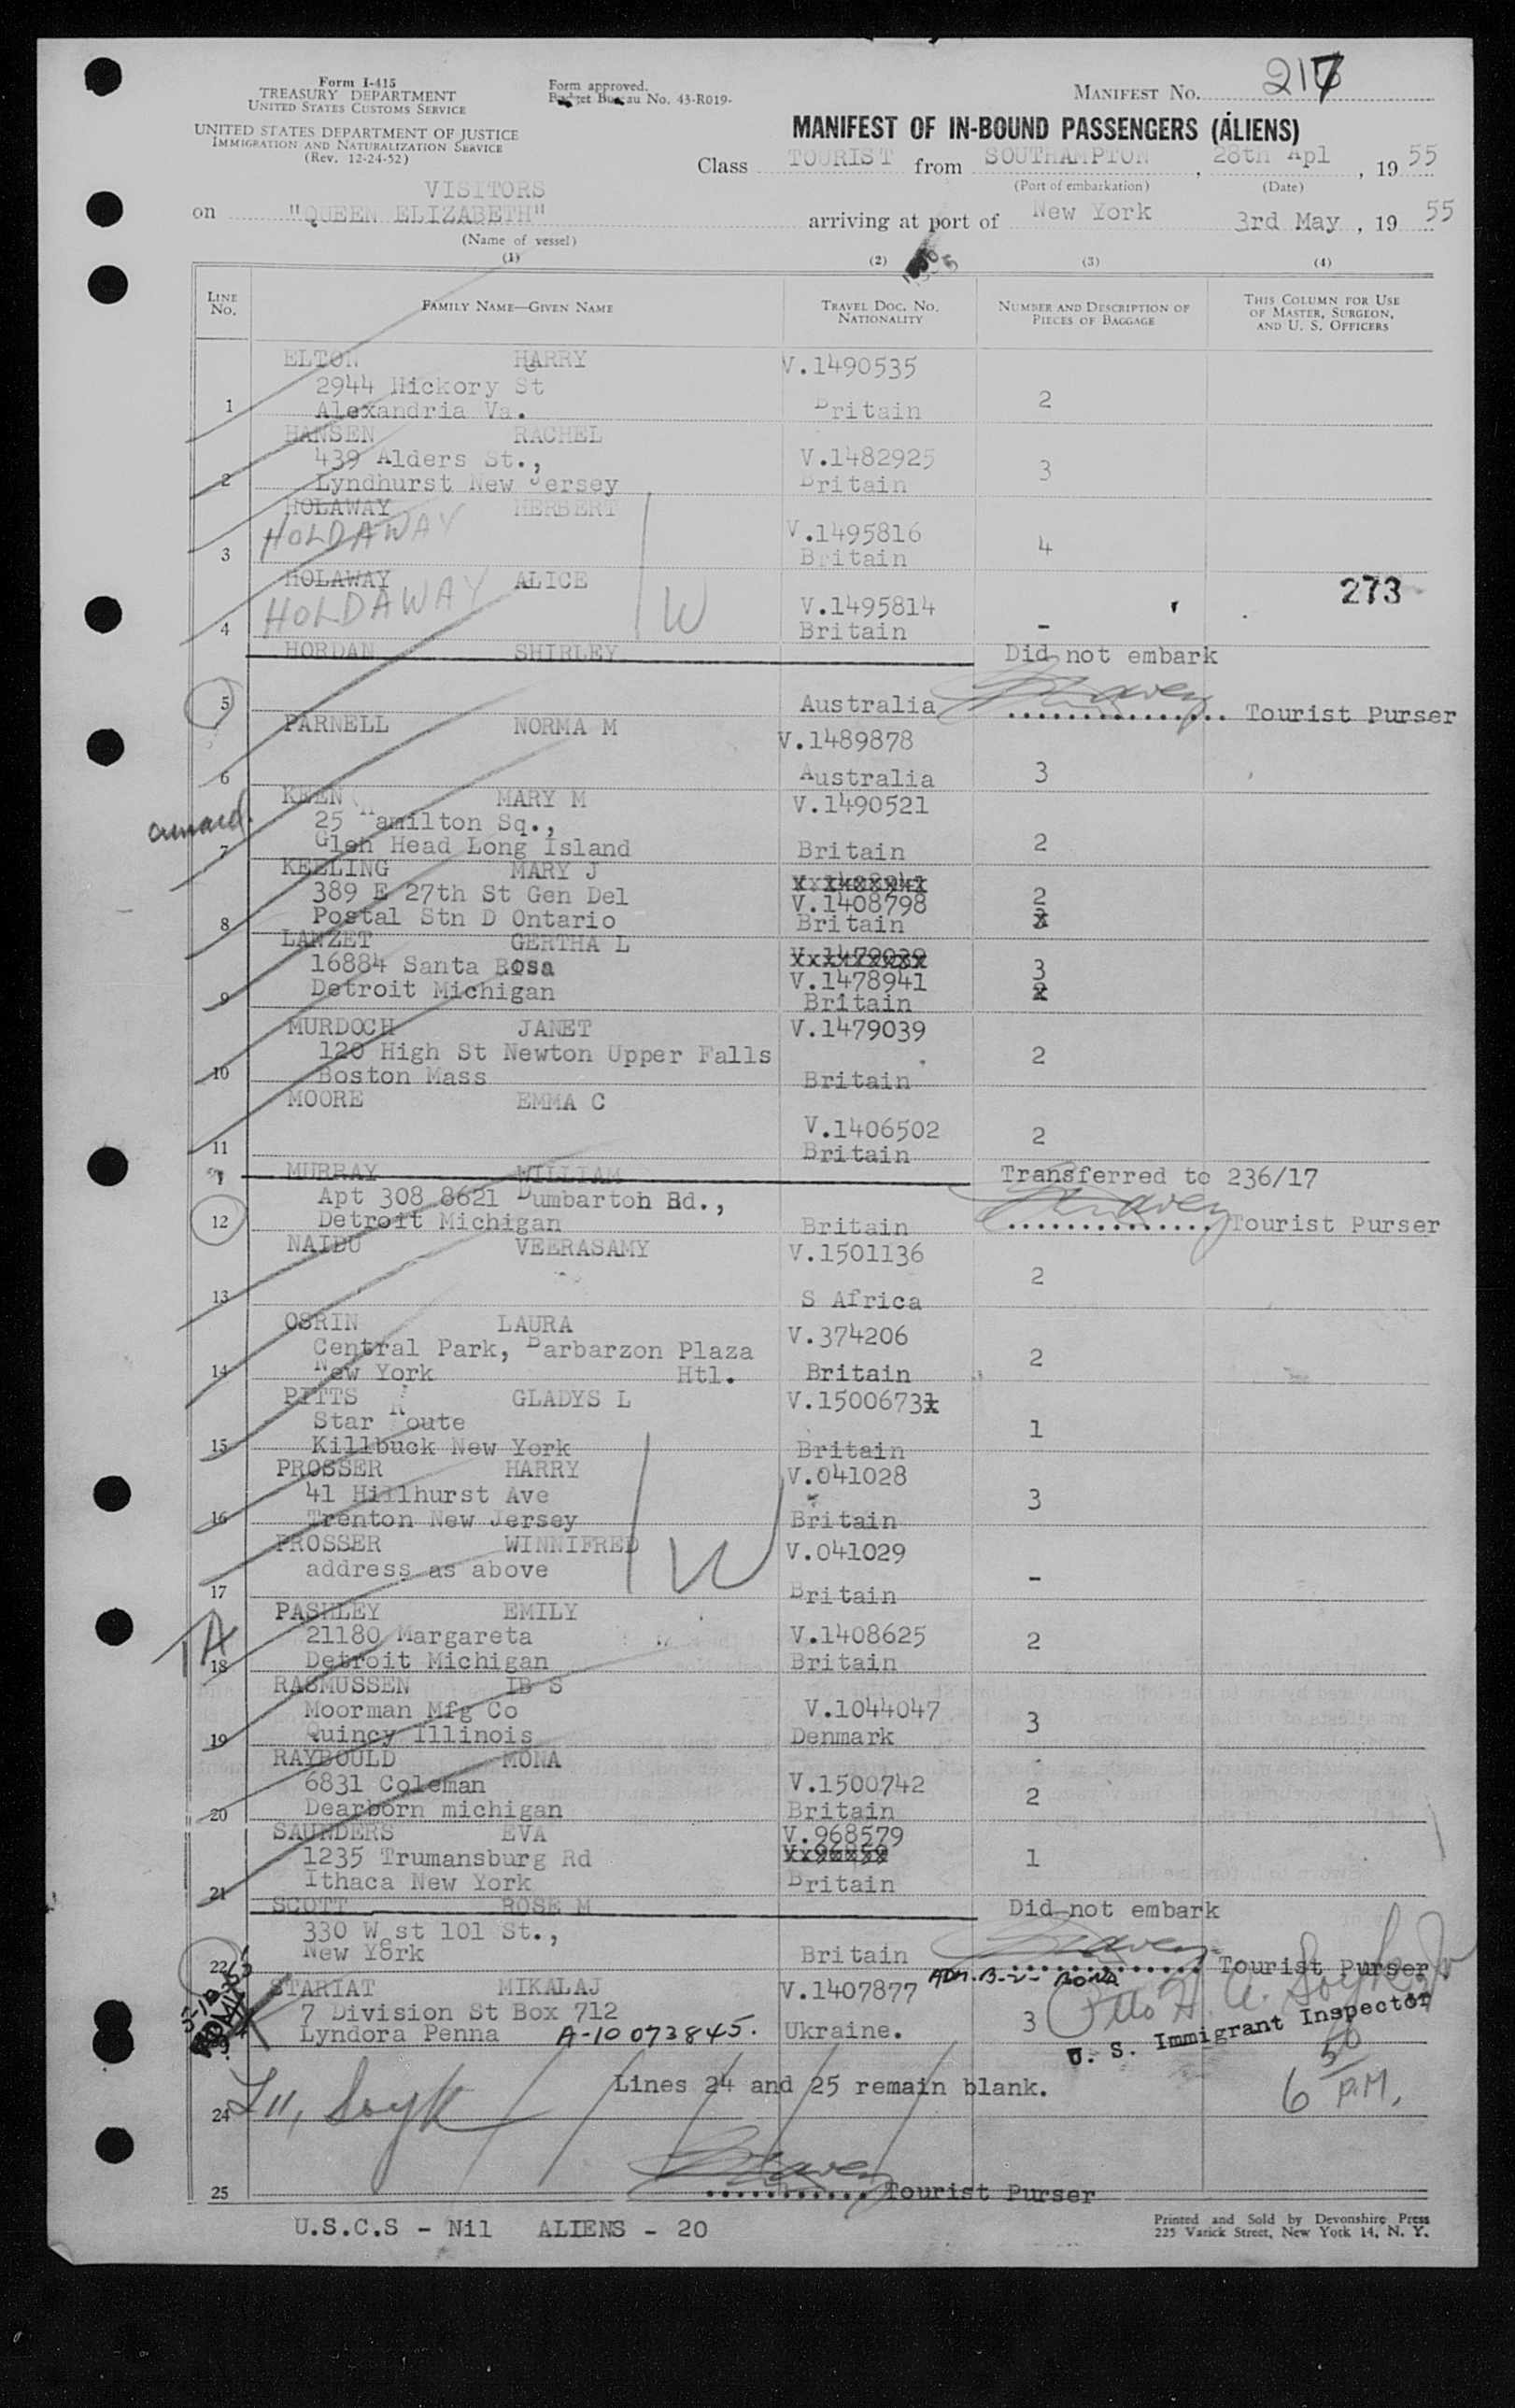 Form I-415
TREASURY DEPARTMENT
UNITED STATES CUSTOMS SERVICE
Form approved.
Budget Bureau No. 43-R019-
MANIFEST NO. 217
UNITED STATES DEPARTMENT OF JUSTICE
IMMIGRATION AND NATURALIZATION SERVICE
(Rev. 12-24-52)
MANIFEST OF IN-BOUND PASSENGERS (ALIENS)
Class TOURIST from SOUTHAMPTON, 28th Apl, 1955
(Port of embarkation) (Date)
VISITORS
on "QUEEN ELIZABETH" arriving at port of New York 3rd May, 1955
(Name of vessel)
(1) (2) (3) (4)
LINE NO. FAMILY NAME—GIVEN NAME TRAVEL DOC. NO. NATIONALITY NUMBER AND DESCRIPTION OF PIECES OF BAGGAGE THIS COLUMN FOR USE OF MASTER, SURGEON, AND U. S. OFFICERS
ELTON HARRY V.1490535
2944 Hickory St
1 Alexandria Va. Britain 2
HANSEN RACHEL
439 Alders St., V.1482925 3
2 Lyndhurst New Jersey Britain
HOLAWAY HERBERT
HOLDAWAY V.1495816
3 Britain 4
HOLAWAY ALICE 273
HOLDAWAY W V.1495814
4 Britain -
HORDAN SHIRLEY Did not embark
5 Australia Tourist Purser
PARNELL NORMA M V.1489878
6 Australia 3
KEEN MARY M V.1490521
cunard. 25 Hamilton Sq.,
7 Glen Head Long Island Britain 2
KEELING MARY J
389 E 27th St Gen Del V.1408798 2
8 Postal Stn D Ontario Britain
LANZET GERTHA L V.1479039
16884 Santa Rosa V.1478941 3
9 Detroit Michigan Britain
MURDOCH JANET V.1479039
120 High St Newton Upper Falls 2
10 Boston Mass Britain
MOORE EMMA C
V.1406502 2
11 Britain
MURRAY WILLIAM Transferred to 236/17
Apt 308 8621 Dumbarton Rd.,
12 Detroit Michigan Britain Tourist Purser
NAIDU VEERASAMY V.1501136
2
13 S Africa
OSRIN LAURA V.374206
Central Park, Barbarzon Plaza 2
14 New York Htl. Britain
PITTS GLADYS L V.1500673x
Star Route 1
15 Killbuck New York Britain
PROSSER HARRY V.041028
41 Hillhurst Ave 3
16 Trenton New Jersey Britain
PROSSER WINNIFRED W V.041029
address as above -
17 Britain
PASHLEY EMILY
21180 Margareta V.1408625 2
18 Detroit Michigan Britain
RASMUSSEN IB S
Moorman Mfg Co V.1044047 3
19 Quincy Illinois Denmark
RAYBOULD MONA
6831 Coleman V.1500742 2
20 Dearborn michigan Britain
SAUNDERS EVA V.968579
1235 Trumansburg Rd 1
21 Ithaca New York Britain
SCOTT ROSE M Did not embark
330 West 101 St.,
22 New York Britain Tourist Purser
STARIAT MIKALAJ V.1407877 ADM. B-2- BOND
7 Division St Box 712 3
Lyndora Penna A-10 073845. Ukraine.
U. S. Immigrant Inspector
6 50 P.M.
Lines 24 and 25 remain blank.
24
25 Tourist Purser
U.S.C.S - Nil ALIENS - 20
Printed and Sold by Devonshire Press
225 Varick Street, New York 14, N. Y.